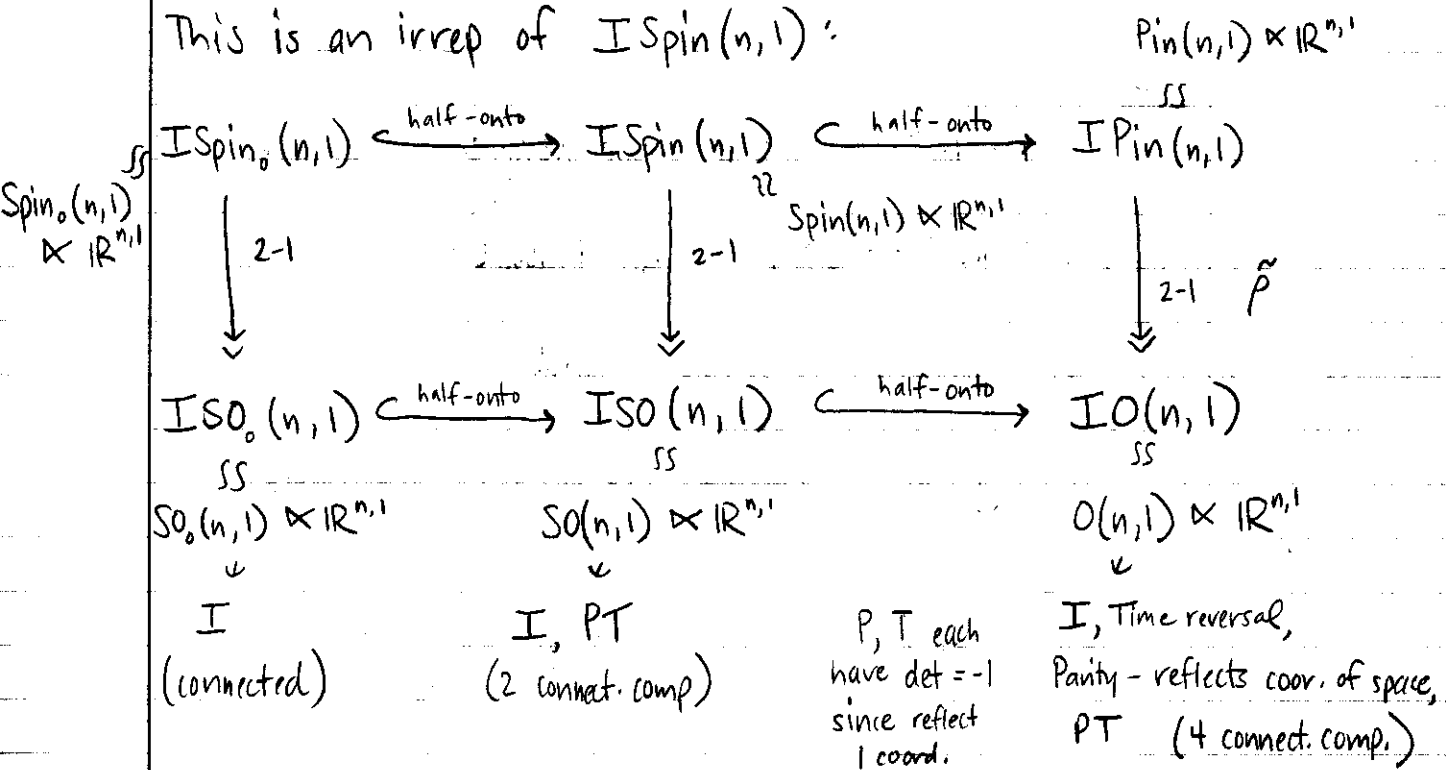 This is an irrep of ISpin(n,1):
Pin(n,1) ⋉ ℝⁿ,¹
≀≀
ISpin₀(n,1) half-onto ISpin(n,1) half-onto IPin(n,1)
≀≀
≀≀
Spin₀(n,1)
⋉ ℝⁿ,¹
Spin(n,1) ⋉ ℝⁿ,¹
2-1 2-1 2-1 ρ̃
ISO₀(n,1) half-onto ISO(n,1) half-onto IO(n,1)
≀≀ ≀≀ ≀≀
SO₀(n,1) ⋉ ℝⁿ,¹ SO(n,1) ⋉ ℝⁿ,¹ O(n,1) ⋉ ℝⁿ,¹
I
(connected)
I, PT
(2 connect. comp)
P, T each
have det = -1
since reflect
1 coord.
I, Time reversal,
Parity - reflects coor. of space,
PT (4 connect. comp.)